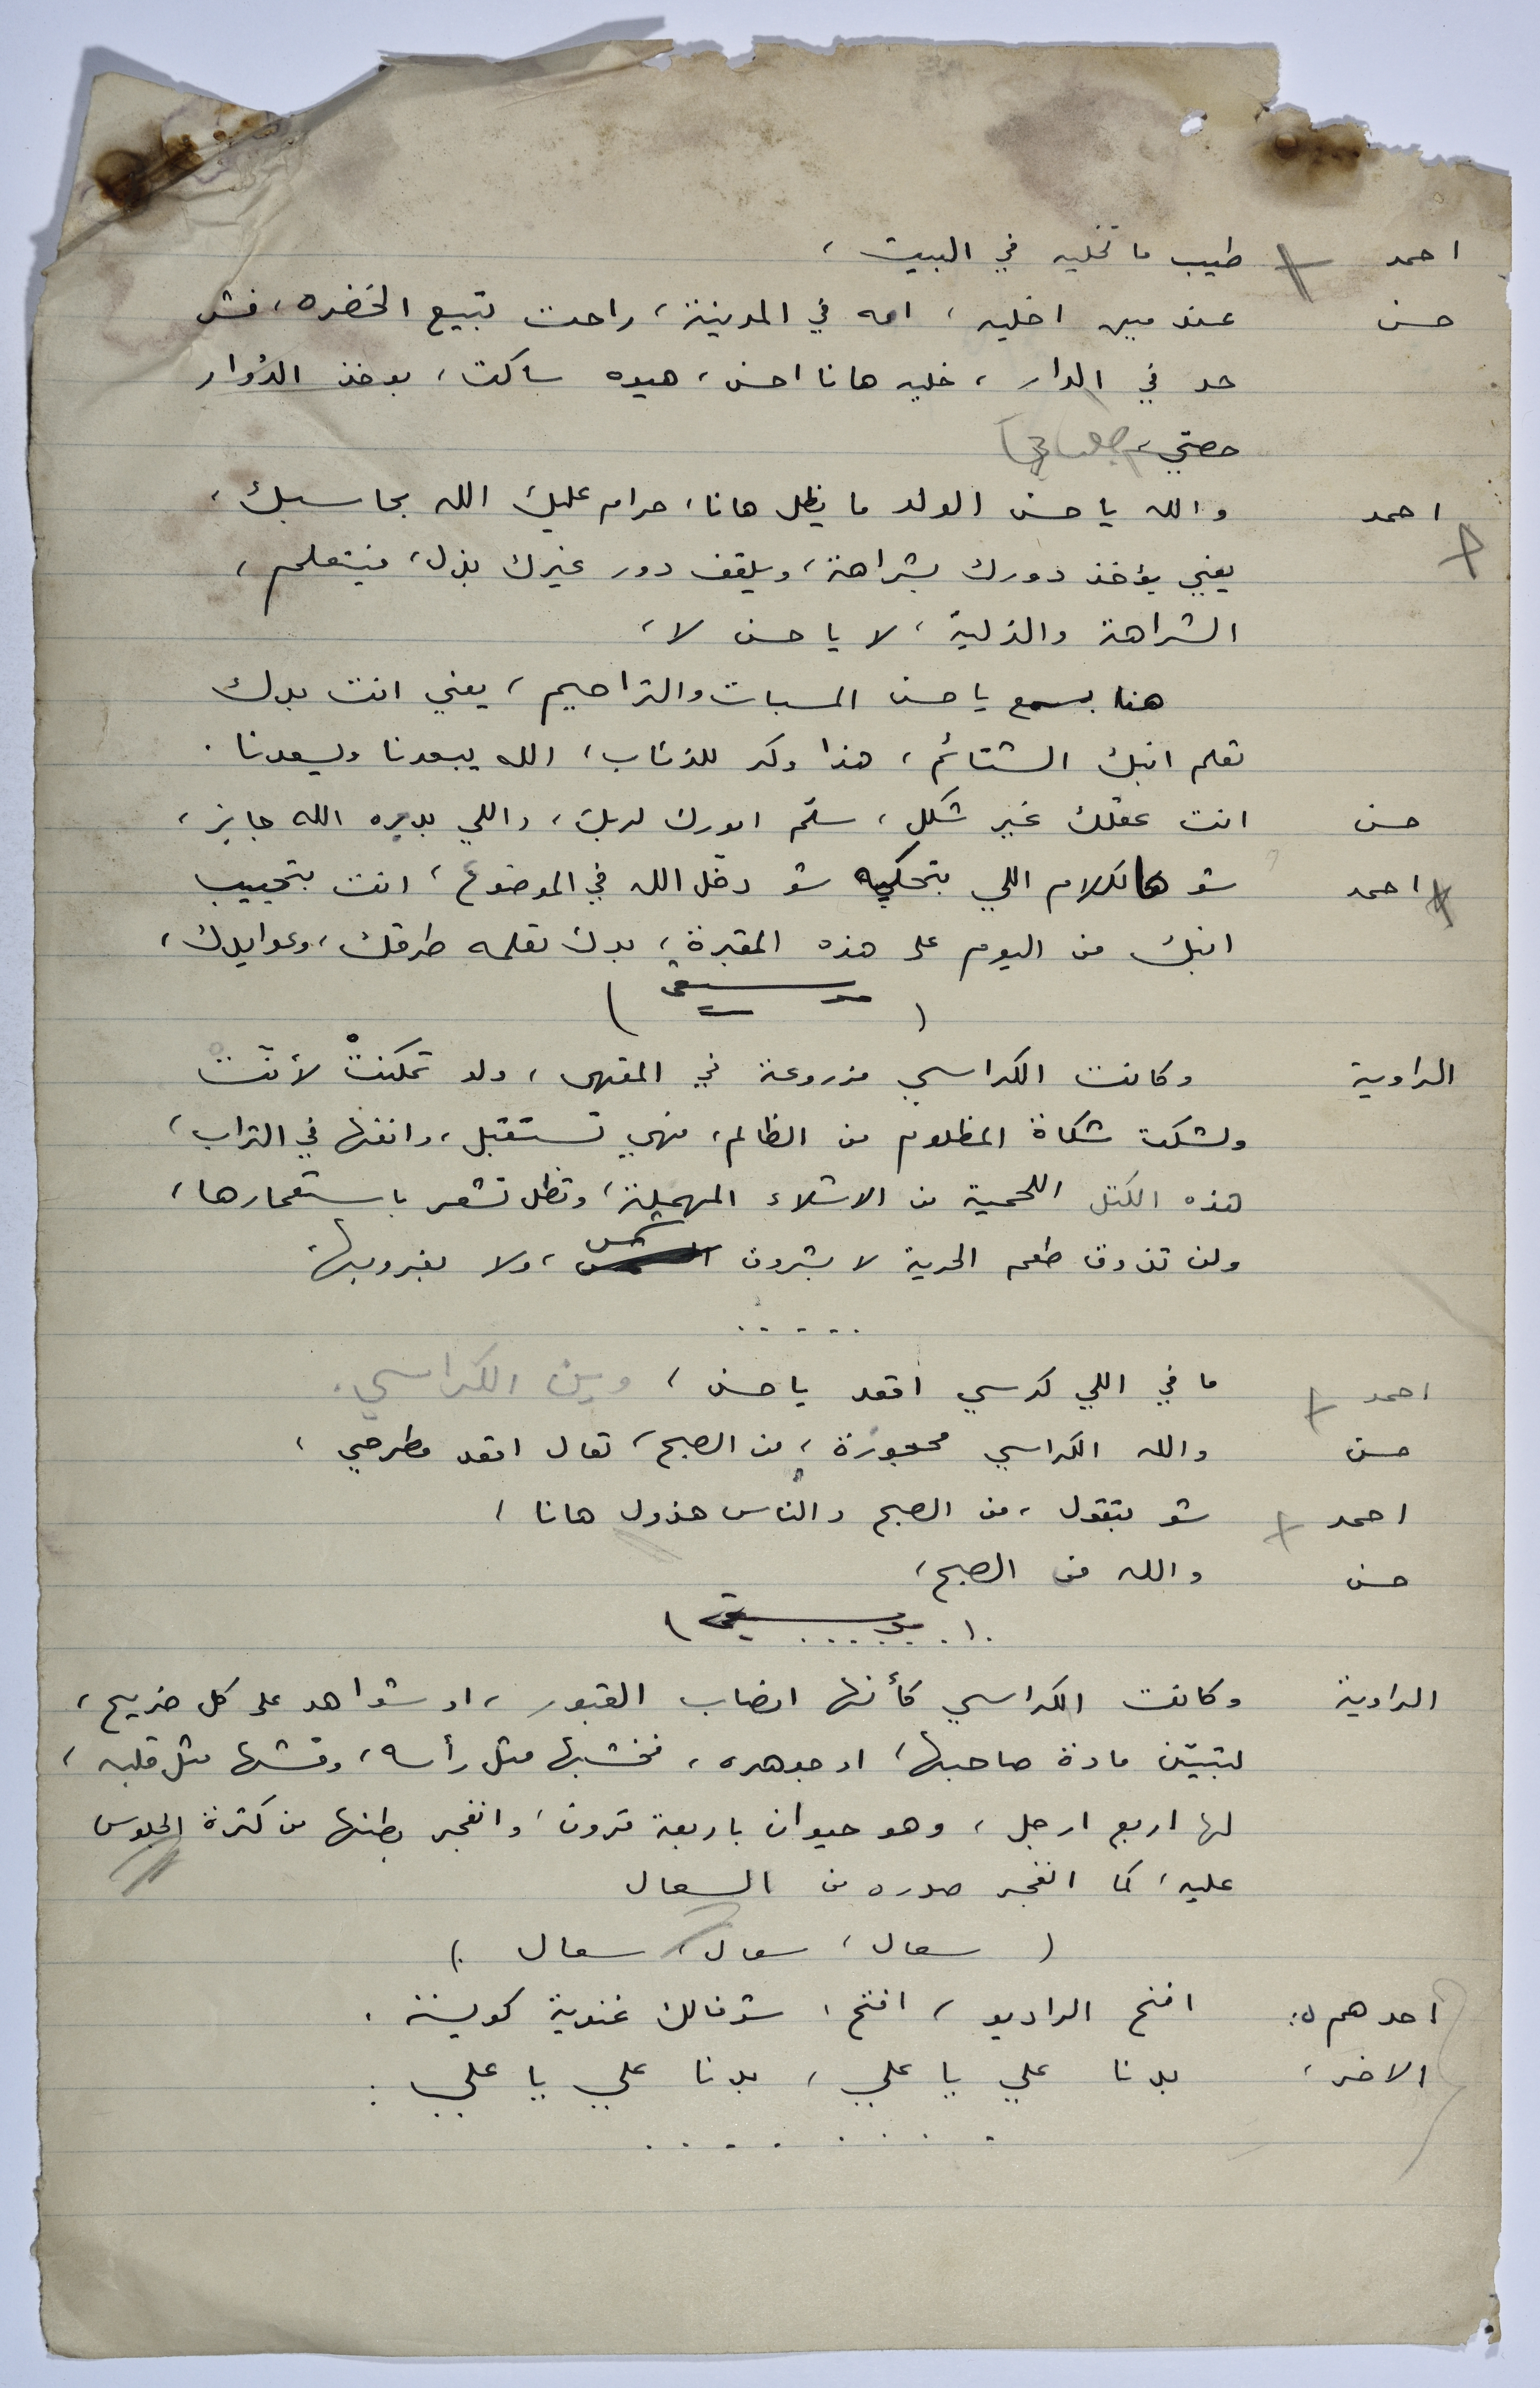 احمد طيب ما تخليه في البيت ،
حسن عند مين اخليه ، امه في المدينة ، راحت تبيع الخضره ، فش
حد في الدار ، خليه هانا احسن ، هيوه ساكت ، بوخذ الدُوار
حصتي ،
احمد والله يا حسن الولد ما يظل هانا ، حرام عليك الله بحاسبك ،
يعني يؤخذ دورك بشراهة ، ويلقف دور غيرك بذل ، فيتعلم ،
الشراهة والذلية ، لا يا حسن لا ،
هنا بسمع يا حسن المسبات والتراحيم ، يعني انت بدك
تعلم ابنك الشتائم ، هذا وكر للذئاب ، الله يبعدنا ويسعدنا .
حسن انت عقلك غير شكل ، سلّم امورك لربك ، واللي بديره الله جايز ،
احمد شو هالكلام اللي بتحكيه شو دخل الله في الموضوع ، انت بتجيب
ابنك من اليوم على هذه المقبرة ، بدك تعلمه طرقك ، وعوايدك ،
( موسيقى )
الراوية وكانت الكراسي مزروعة في المقهى ، ولو تمكنتْ لأنّت
ولشكت شكاة المظلوم من الظالم ، فهي تستقبل ، وانفها في التراب ،
هذه الكتل اللحمية من الاشلاء المهملة ، وتظل تشعر باستعمارها ،
ولن تذوق طعم الحرية لا بشروق شمس ، ولا بغروبها
. . . . .
احمد ما في اللي كرسي اقعد يا حسن ، وين الكراسي .
حسن والله الكراسي محجوزة ، من الصبح ، تعال اقعد مطرحي ،
احمد شو بتقول ، من الصبح والناس هذول هانا ،
حسن والله من الصبح ،
( موسيقى )
الراوية وكانت الكراسي كأنها انصاب القبور ، او شواهد على كل ضريح ،
لتبيّن مادة صاحبها ، او جوهره ، فخشبها مثل رأسه ، وقشها مثل قلبه ،
لها اربع ارجل ، وهو حيوان باربعة قرون ، وانفجر بطنها من كثرة الجلوس
عليه ، كما انفجر صدره من السعال
( سعال ، سعال ، سعال . )
احدهم : افتح الراديو ، افتح ، شوفالك غنوية كويسة .
الاخر ، بدنا علي يا علي ، بدنا علي يا علي .
. . . . . . . .